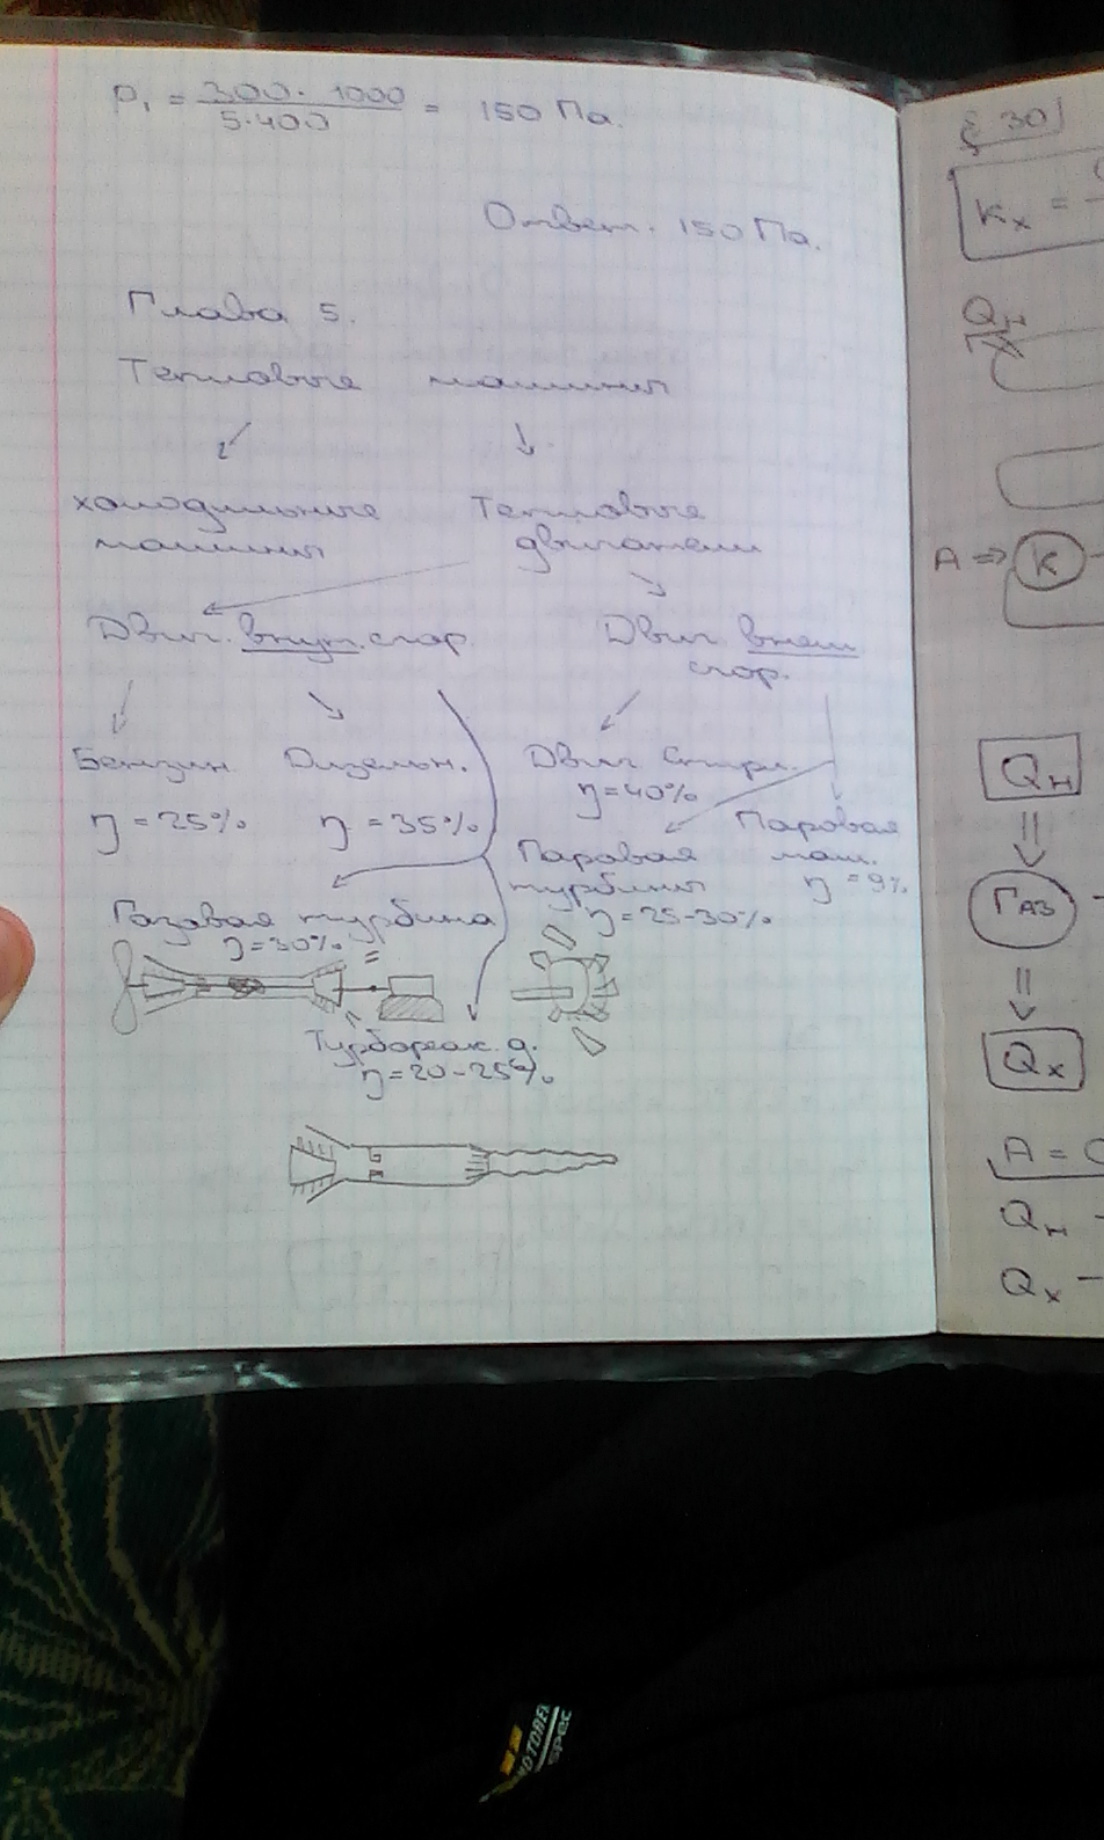 P₁ = 300 · 1000 / 5·400 = 150 Па.
Ответ. 150 Па.
Глава 5.
Тепловые машины
холодильные
машины
Тепловые
двигатели
Двиг. внут. сгор.
Двиг внеш
сгор.
Бензин
η = 25%
Дизельн.
η = 35%
Двиг Стирл.
η = 40%
Паровая
турбины
η = 25-30%
Паровая
маш.
η = 9%
Газовая турбина
η = 30%
Турбореак. д.
η = 20 - 25%
§ 30
Kх =
Qн
A ⇒ K
Qн
Газ
Qх
A =
Qн -
Qх -
MOTOREX
spec